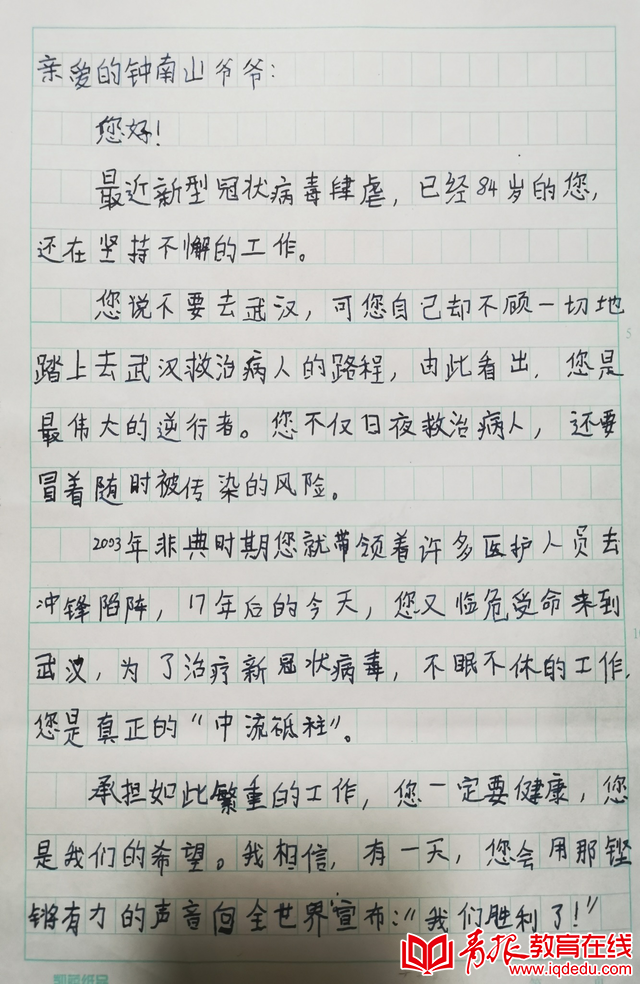 亲爱的钟南山爷爷：
您好！
最近新型冠状病毒肆虐，已经84岁的您，
还在坚持不懈的工作。
您说不要去武汉，可您自己却不顾一切地
踏上去武汉救治病人的路程，由此看出，您是
最伟大的逆行者。您不仅日夜救治病人，还要
冒着随时被传染的风险。
2003年非典时期您就带领着许多医护人员去
冲锋陷阵，17年后的今天，您又临危受命来到
武汉，为了治疗新冠状病毒，不眠不休的工作，
您是真正的“中流砥柱”。
承担如此繁重的工作，您一定要健康，您
是我们的希望。我相信，有一天，您会用那铿
锵有力的声音向全世界宣布：“我们胜利了！”
青报教育在线
www.iqdedu.com
5